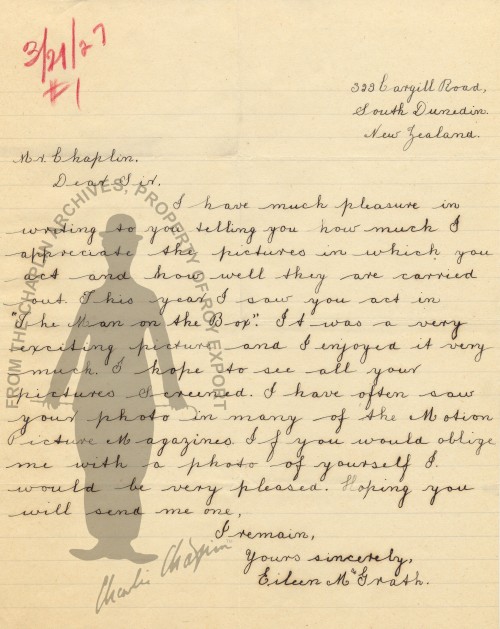 3/21/27
#1
323 Cargill Road,
South Dunedin.
New Zealand.
Mr. Chaplin.
Dear Sir.
I have much pleasure in
writing to you telling you how much I
appreciate the pictures in which you
act and how well they are carried
out. This year I saw you act in
"The Man on the Box". It was a very
exciting picture and I enjoyed it very
much. I hope to see all your
pictures screened. I have often saw
your photo in many of the Motion
Picture Magazines. If you would oblige
me with a photo of yourself I
would be very pleased. Hoping you
will send me one,
I remain,
Yours sincerely,
Eileen McGrath.
FROM THE CHAPLIN ARCHIVES, PROPERTY OF ROY EXPORT
Charlie Chaplin